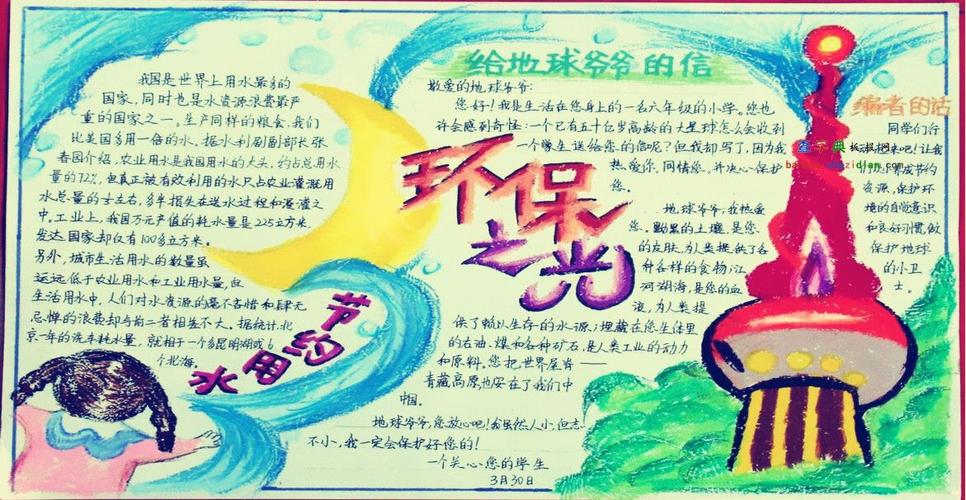 我国是世界上用水最多的
国家，同时也是水资源浪费最严
重的国家之一。生产同样的粮食，我们
比美国多用一倍的水。据水利副部长张
春园介绍，农业用水是我国用水的大头，约占总用水
量的72%，但真正被有效利用的水只占农业灌溉用
水总量的 左右，多半损失在送水过程和漫灌之
中。工业上，我国万元产值的耗水量是225立方米，
发达国家却仅有100多立方米。
另外，城市生活用水的数量虽
远远低于农业用水和工业用水量，但
生活用水中，人们对水资源的毫不吝惜和肆无
忌惮的浪费却与前二者相差不大。据统计，北
京一年的洗车耗水量，就相于一个多昆明湖或6
个北海。
节约
用
水
环保
之光
给地球爷爷的信
敬爱的地球爷爷：
您好！我是生活在您身上的一名六年级的小学。您也
许会感到奇怪：一个已有五十亿岁高龄的大星球怎么会收到
一个学生送给您的信呢？但我却写了，因为我
热爱你，同情您，并决心保护
您。
地球爷爷，我热爱
您。勤里的土壤，是您
的皮肤，为人类提供了各
种各样的食物；江
河湖海，是您的血
液，为人类提
保了赖以生存的水源；埋藏在您生体里
的石油、煤和各种矿石，是人类工业的动力
和原料。您把世界屋脊——
青藏高原也安在了我们中
中国。
地球爷爷，您放心吧！我虽然人小，但志
不小，我一定会保护好您的！
一个关心您的学生
3月30日
编者的话
同学们行
来吧！让我
们 养成节约
资源，保护环
境的自觉意识
和良好习惯，做
保护地球
的小卫
士。